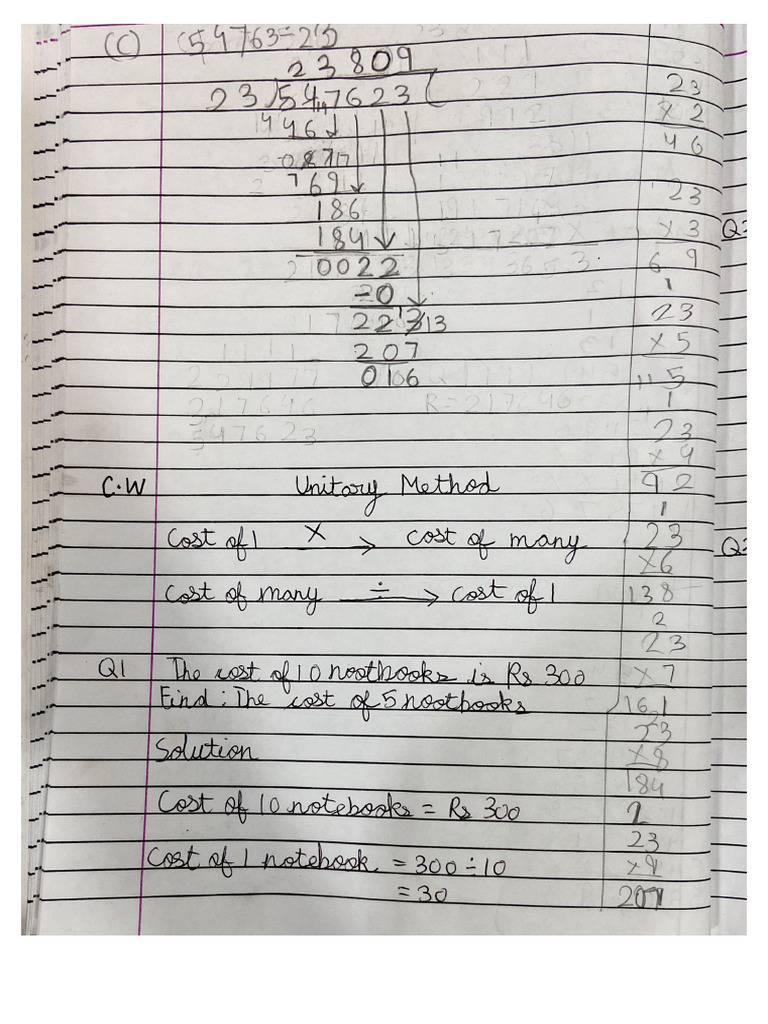 (C) (54763÷23)
23809
23)547623(
46
087
769
186
184
0022
-0
223 13
207
016
C.W Unitary Method
Cost of 1 × → cost of many
Cost of many ÷ → cost of 1
Q1 The cost of 10 nootbooks is Rs 300
Find : The cost of 5 nootbooks
Solution
Cost of 10 notebooks = Rs 300
Cost of 1 notebook = 300÷10
= 30
23
×2
46
23
×3
69
1
23
×5
115
1
23
×4
92
1
23
×6
138
2
23
×7
161
2
23
×8
184
2
23
×9
207
Q
Q